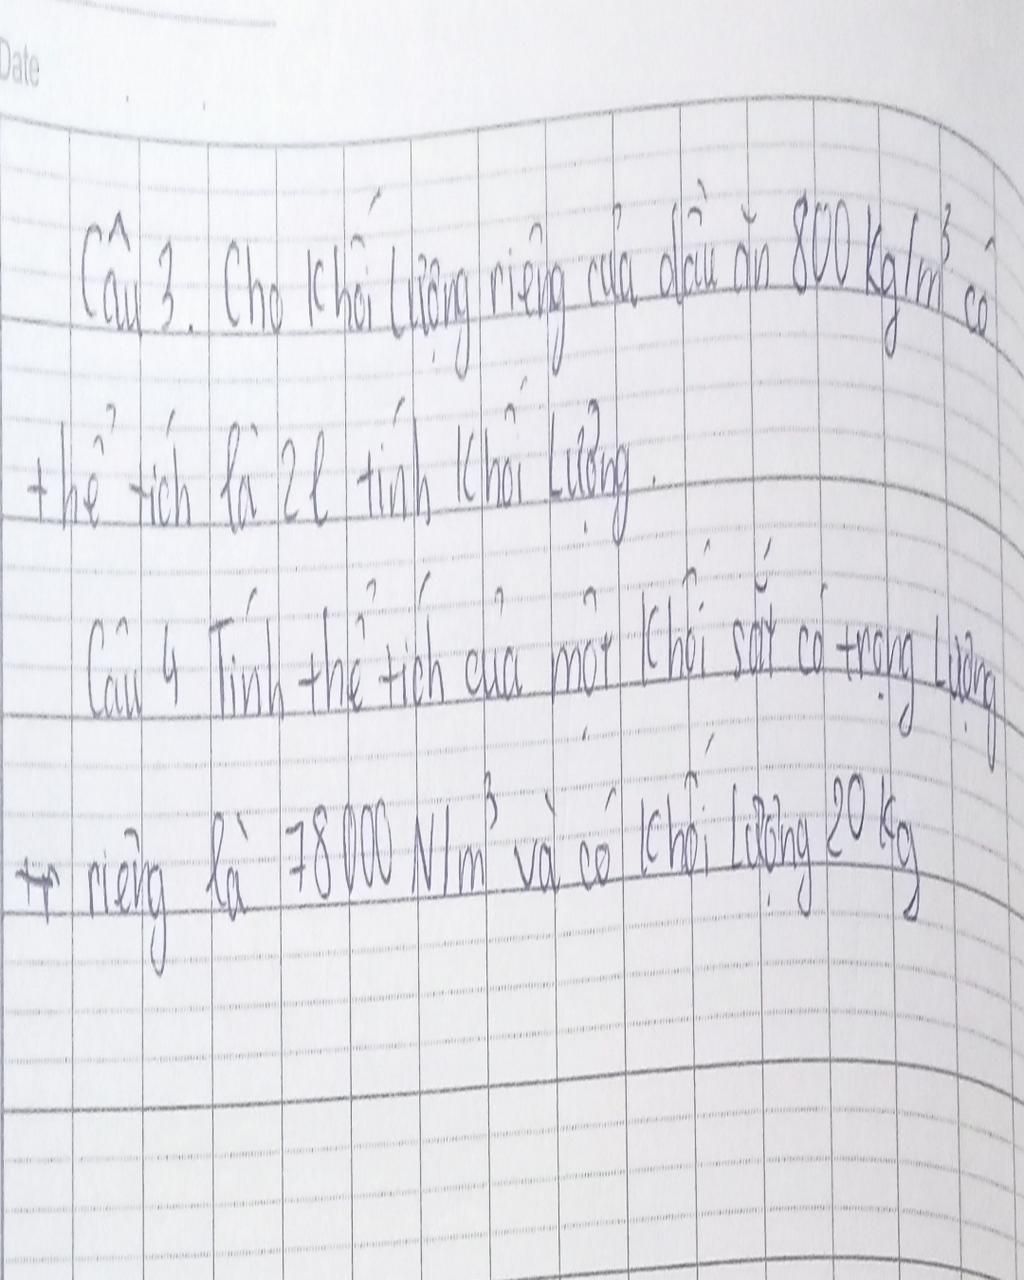 Date
Câu 3. Cho khối lượng riêng của dầu ăn 800 kg/m³ có
thể tích là 2l tính khối lượng.
Câu 4 Tính thể tích của một khối sắt có trọng lượng
riêng là 78000 N/m³ và có khối lượng 20 kg